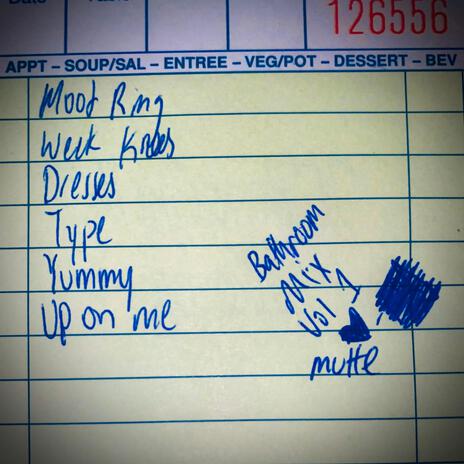 Date Table
126556
APPT – SOUP/SAL – ENTREE – VEG/POT – DESSERT – BEV
Mood Ring
Week Knees
Dresses
Type
Yummy
Up on me
Bathroom
Mix
Vol 1
mutte